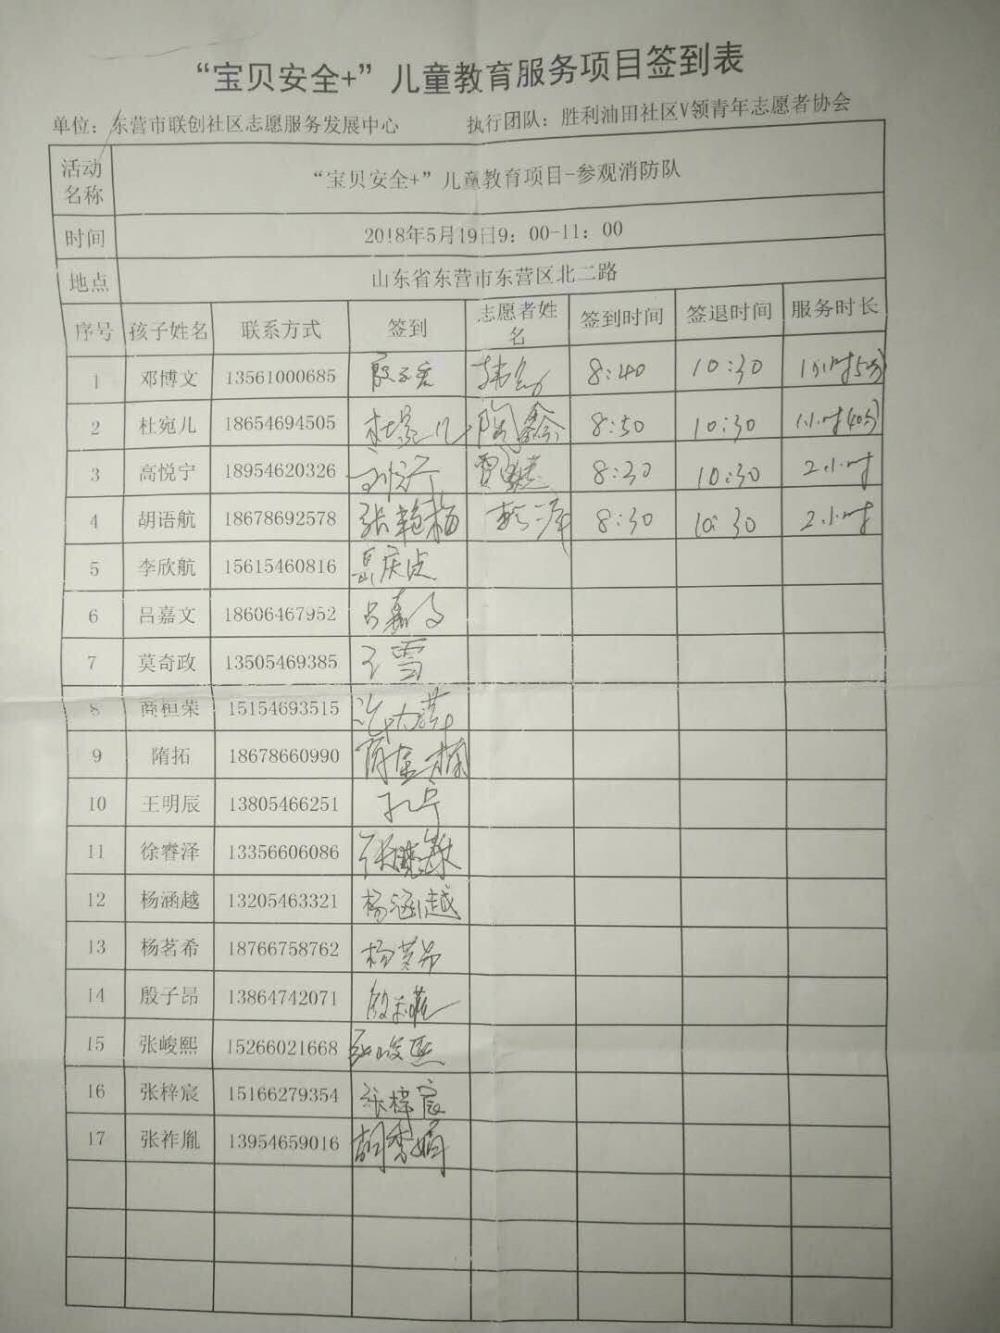 “宝贝安全+”儿童教育服务项目签到表
单位：东营市联创社区志愿服务发展中心 执行团队：胜利油田社区V领青年志愿者协会
活动名称 “宝贝安全+”儿童教育项目-参观消防队
时间 2018年5月19日9：00-11：00
地点 山东省东营市东营区北二路
序号 孩子姓名 联系方式 签到 志愿者姓名 签到时间 签退时间 服务时长
1 邓博文 13561000685 8:40 10:30 1小时50分
2 杜宛儿 18654694505 杜宛儿 陶鑫 8:50 10:30 1小时40分
3 高悦宁 18954620326 8:30 10:30 2小时
4 胡语航 18678692578 张艳梅 8:30 10:30 2小时
5 李欣航 15615460816
6 吕嘉文 18606467952 吕嘉文
7 莫奇政 13505469385 王雪
8 商桓荣 15154693515
9 隋拓 18678660990
10 王明辰 13805466251 孔宁
11 徐睿泽 13356606086
12 杨涵越 13205463321 杨涵越
13 杨茗希 18766758762 杨茗希
14 殷子昂 13864742071
15 张峻熙 15266021668 张峻熙
16 张梓宸 15166279354 张梓宸
17 张祚胤 13954659016 胡香娟